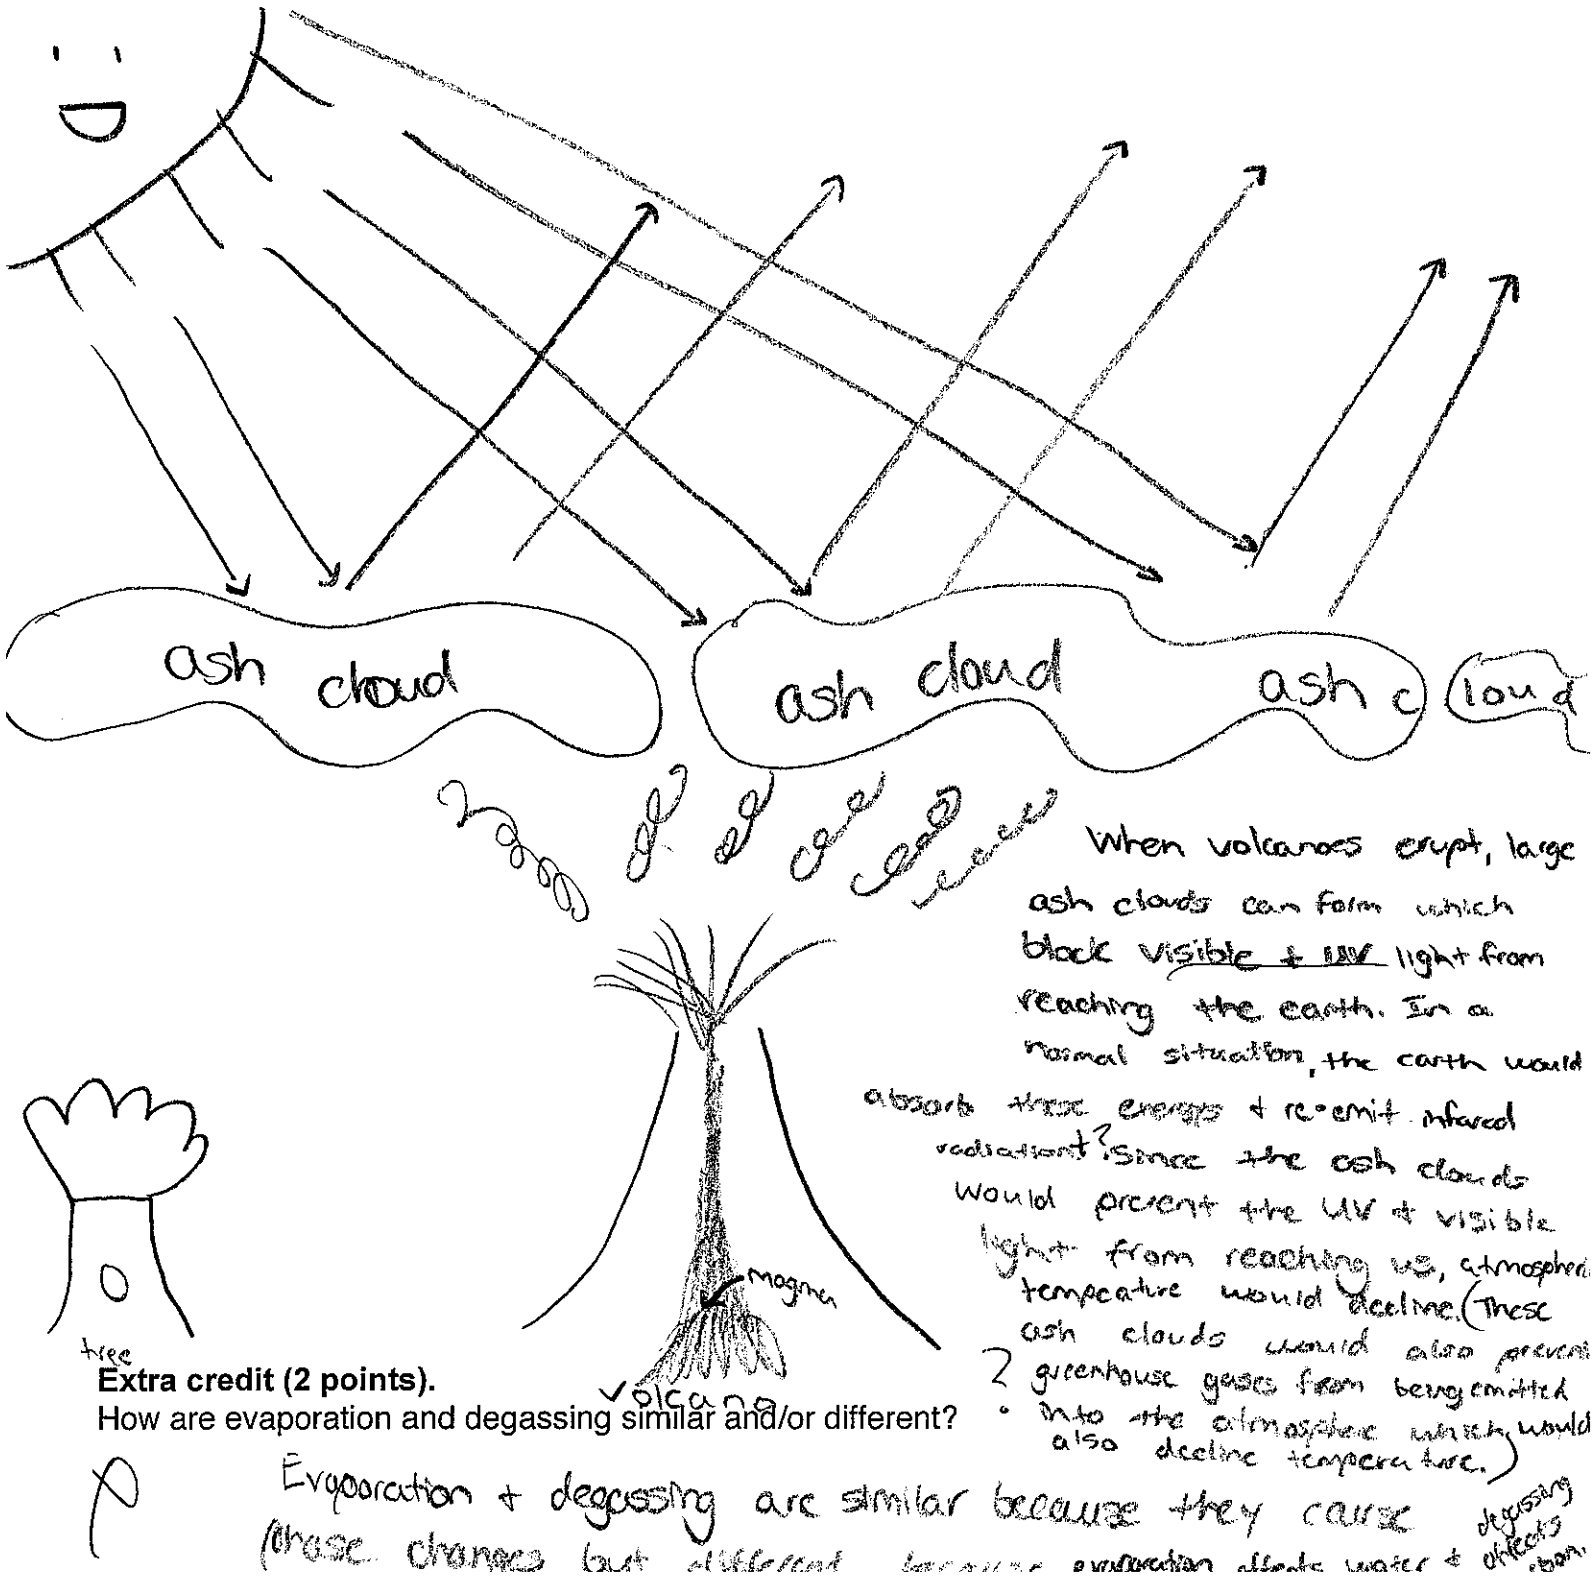 ash cloud
ash cloud
ash c loud
When volcanoes erupt, large
ash clouds can form which
block visible + UV light from
reaching the earth. In a
normal situation, the earth would
absorb these energys + re-emit infared
radiation?. Since the ash clouds
would prevent the UV + visible
light from reaching us, atmospheri
tempeature would decline. (These
ash clouds would also prevent
? greenhouse gases from being emitted
into the atmosphere which would
also decline temperature.)
magma
tree
volcano
Extra credit (2 points).
How are evaporation and degassing similar and/or different?
Evaporation + degassing are similar because they cause
phase changes but different because evaporation affects water +
degassing
affects